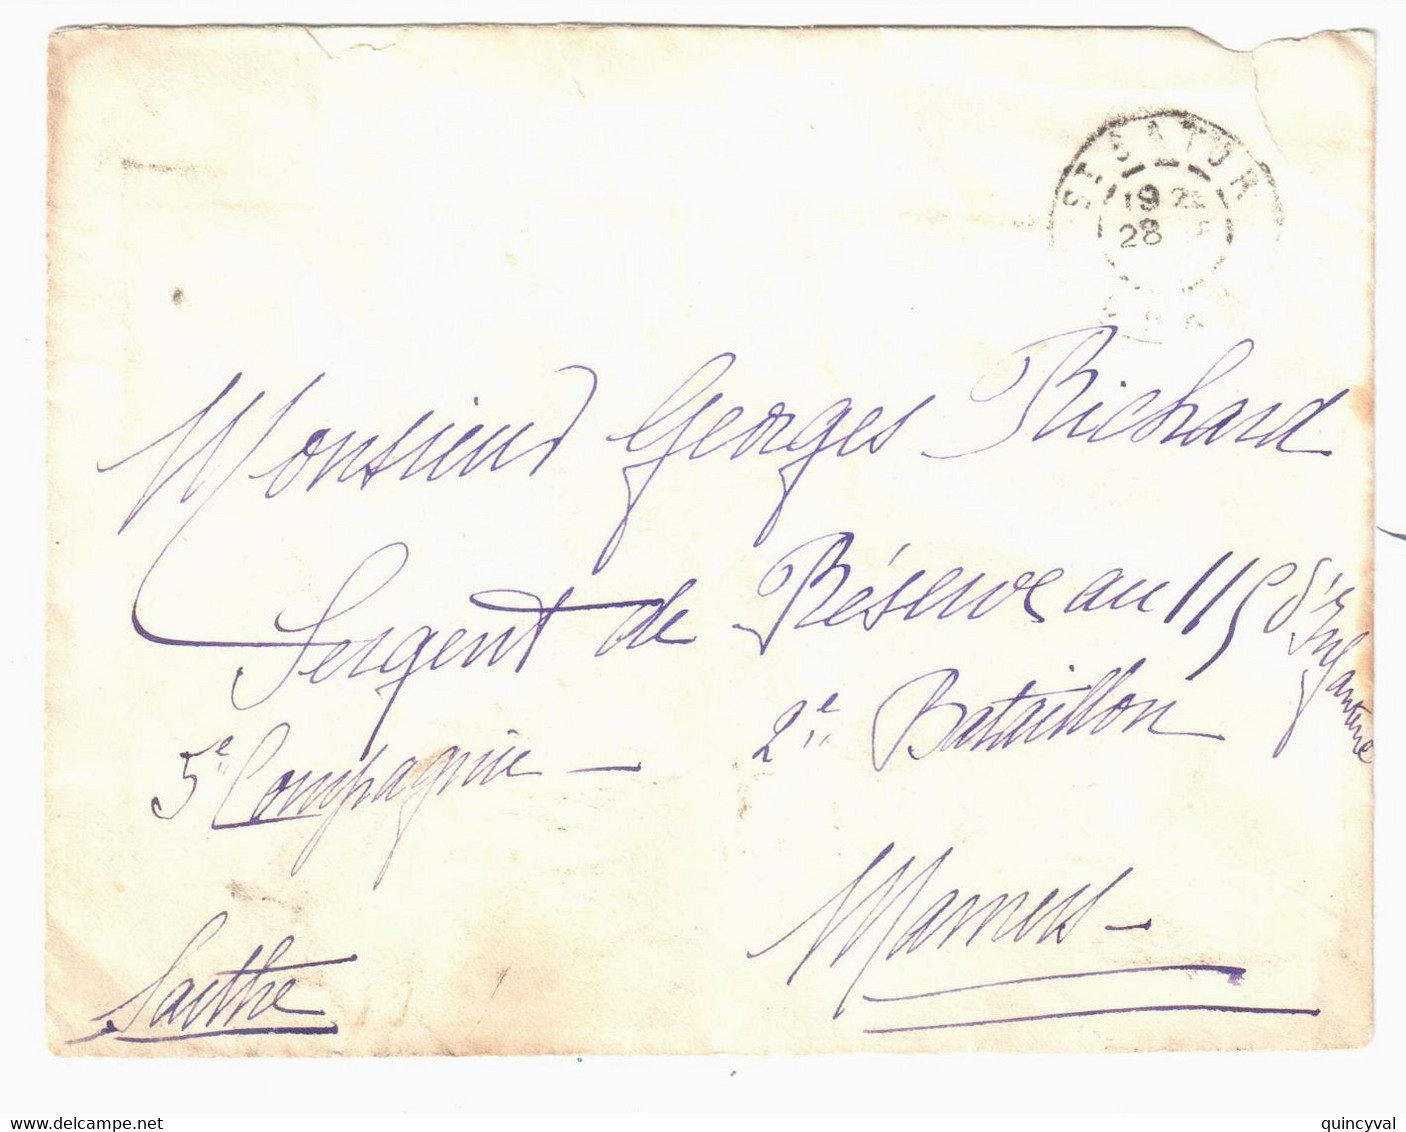 ST SATUR
19 2
28
Monsieur Georges Richard
Sergent de Réserve au 115 d'Infanterie
5e Compagnie — 2e Bataillon
Mamers —
Sarthe
delcampe.net
quincyval